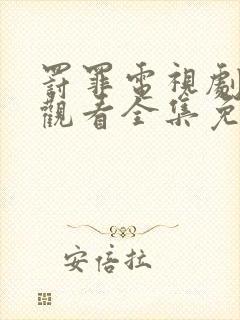 罸罪電視劇
觀看全集免
安倍拉